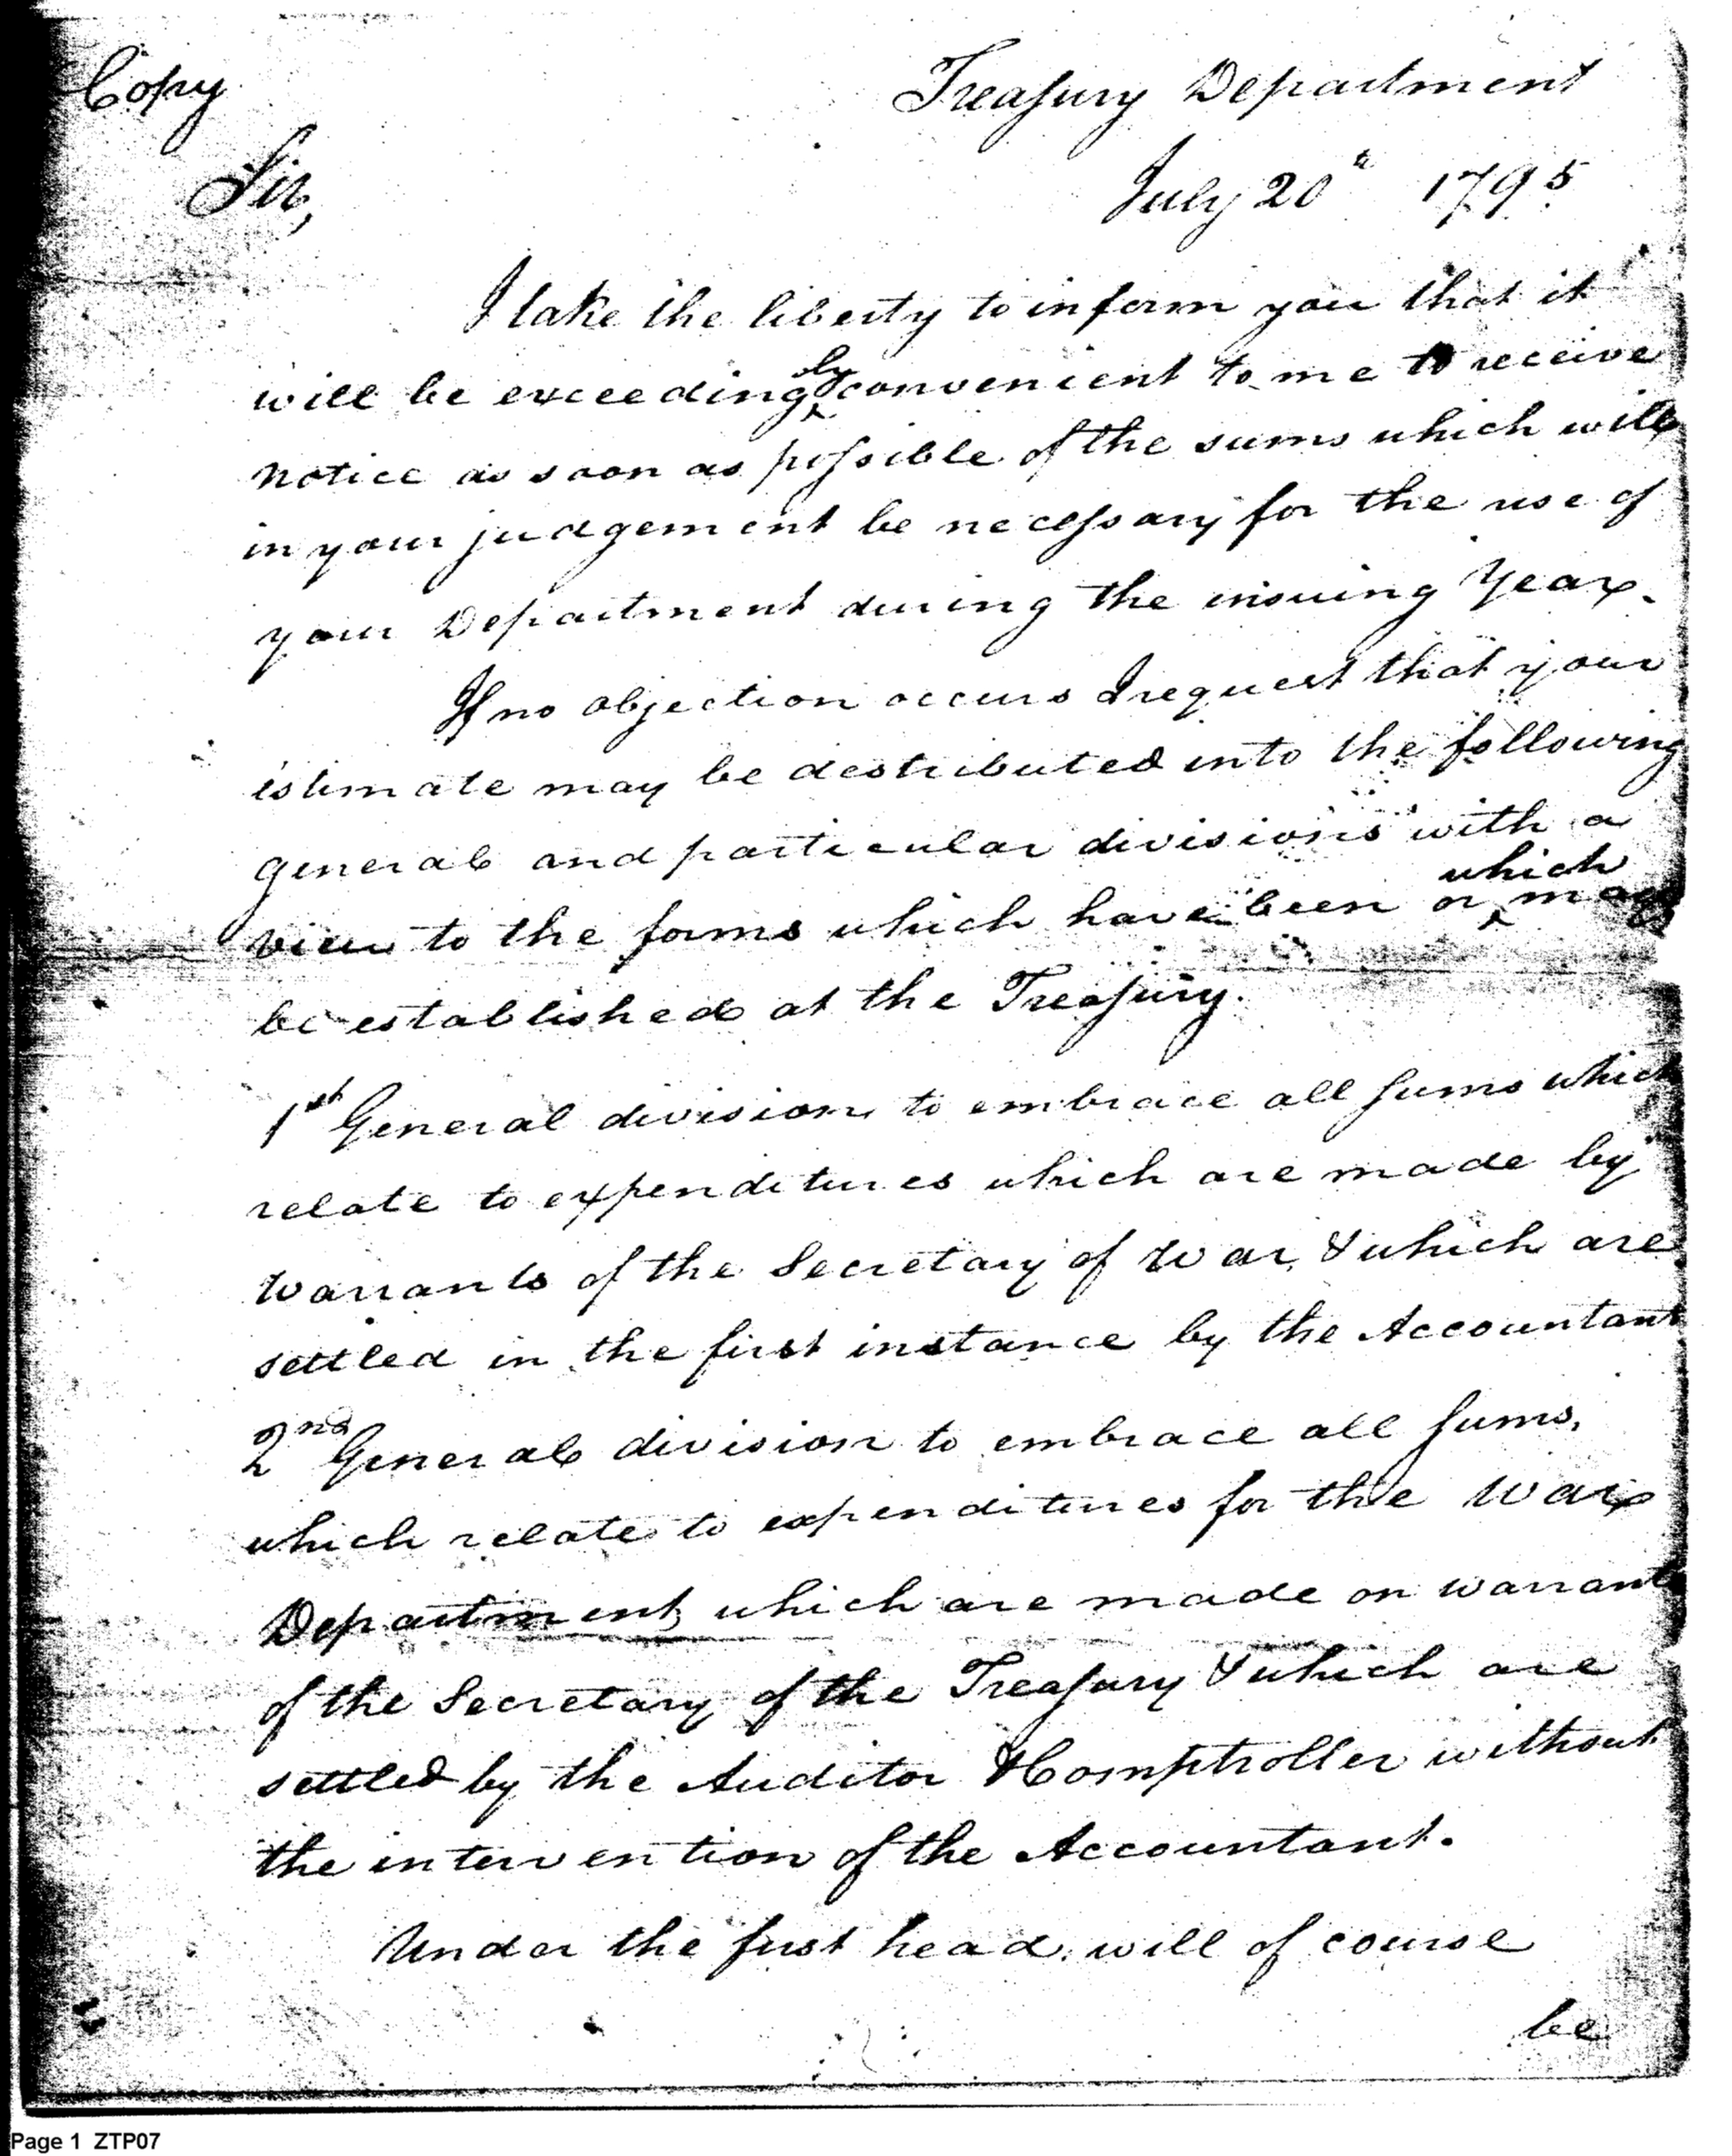 Copy
Treasury Department
Sir,
July 20th 1795
I take the liberty to inform you that it
will be exceedingly convenient to me to receive
notice as soon as possible of the sums which will
in your judgement be necessary for the use of
your Department during the insuing Year.
If no objection occurs I request that your
estimate may be destributed into the following
general and particular divisions with a
view to the forms which have been or which may
be established at the Treasury.
1st General division to embrace all sums which
relate to expenditures which are made by
Warrants of the Secretary of War, & which are
settled in the first instance by the Accountant
2nd General division to embrace all sums,
which relate to expenditures for the War
Department, which are made on warrants
of the Secretary of the Treasury & which are
settled by the Auditor & Comptroller without
the intervention of the Accountant.
Under the first head, will of course
be
Page 1 ZTP07